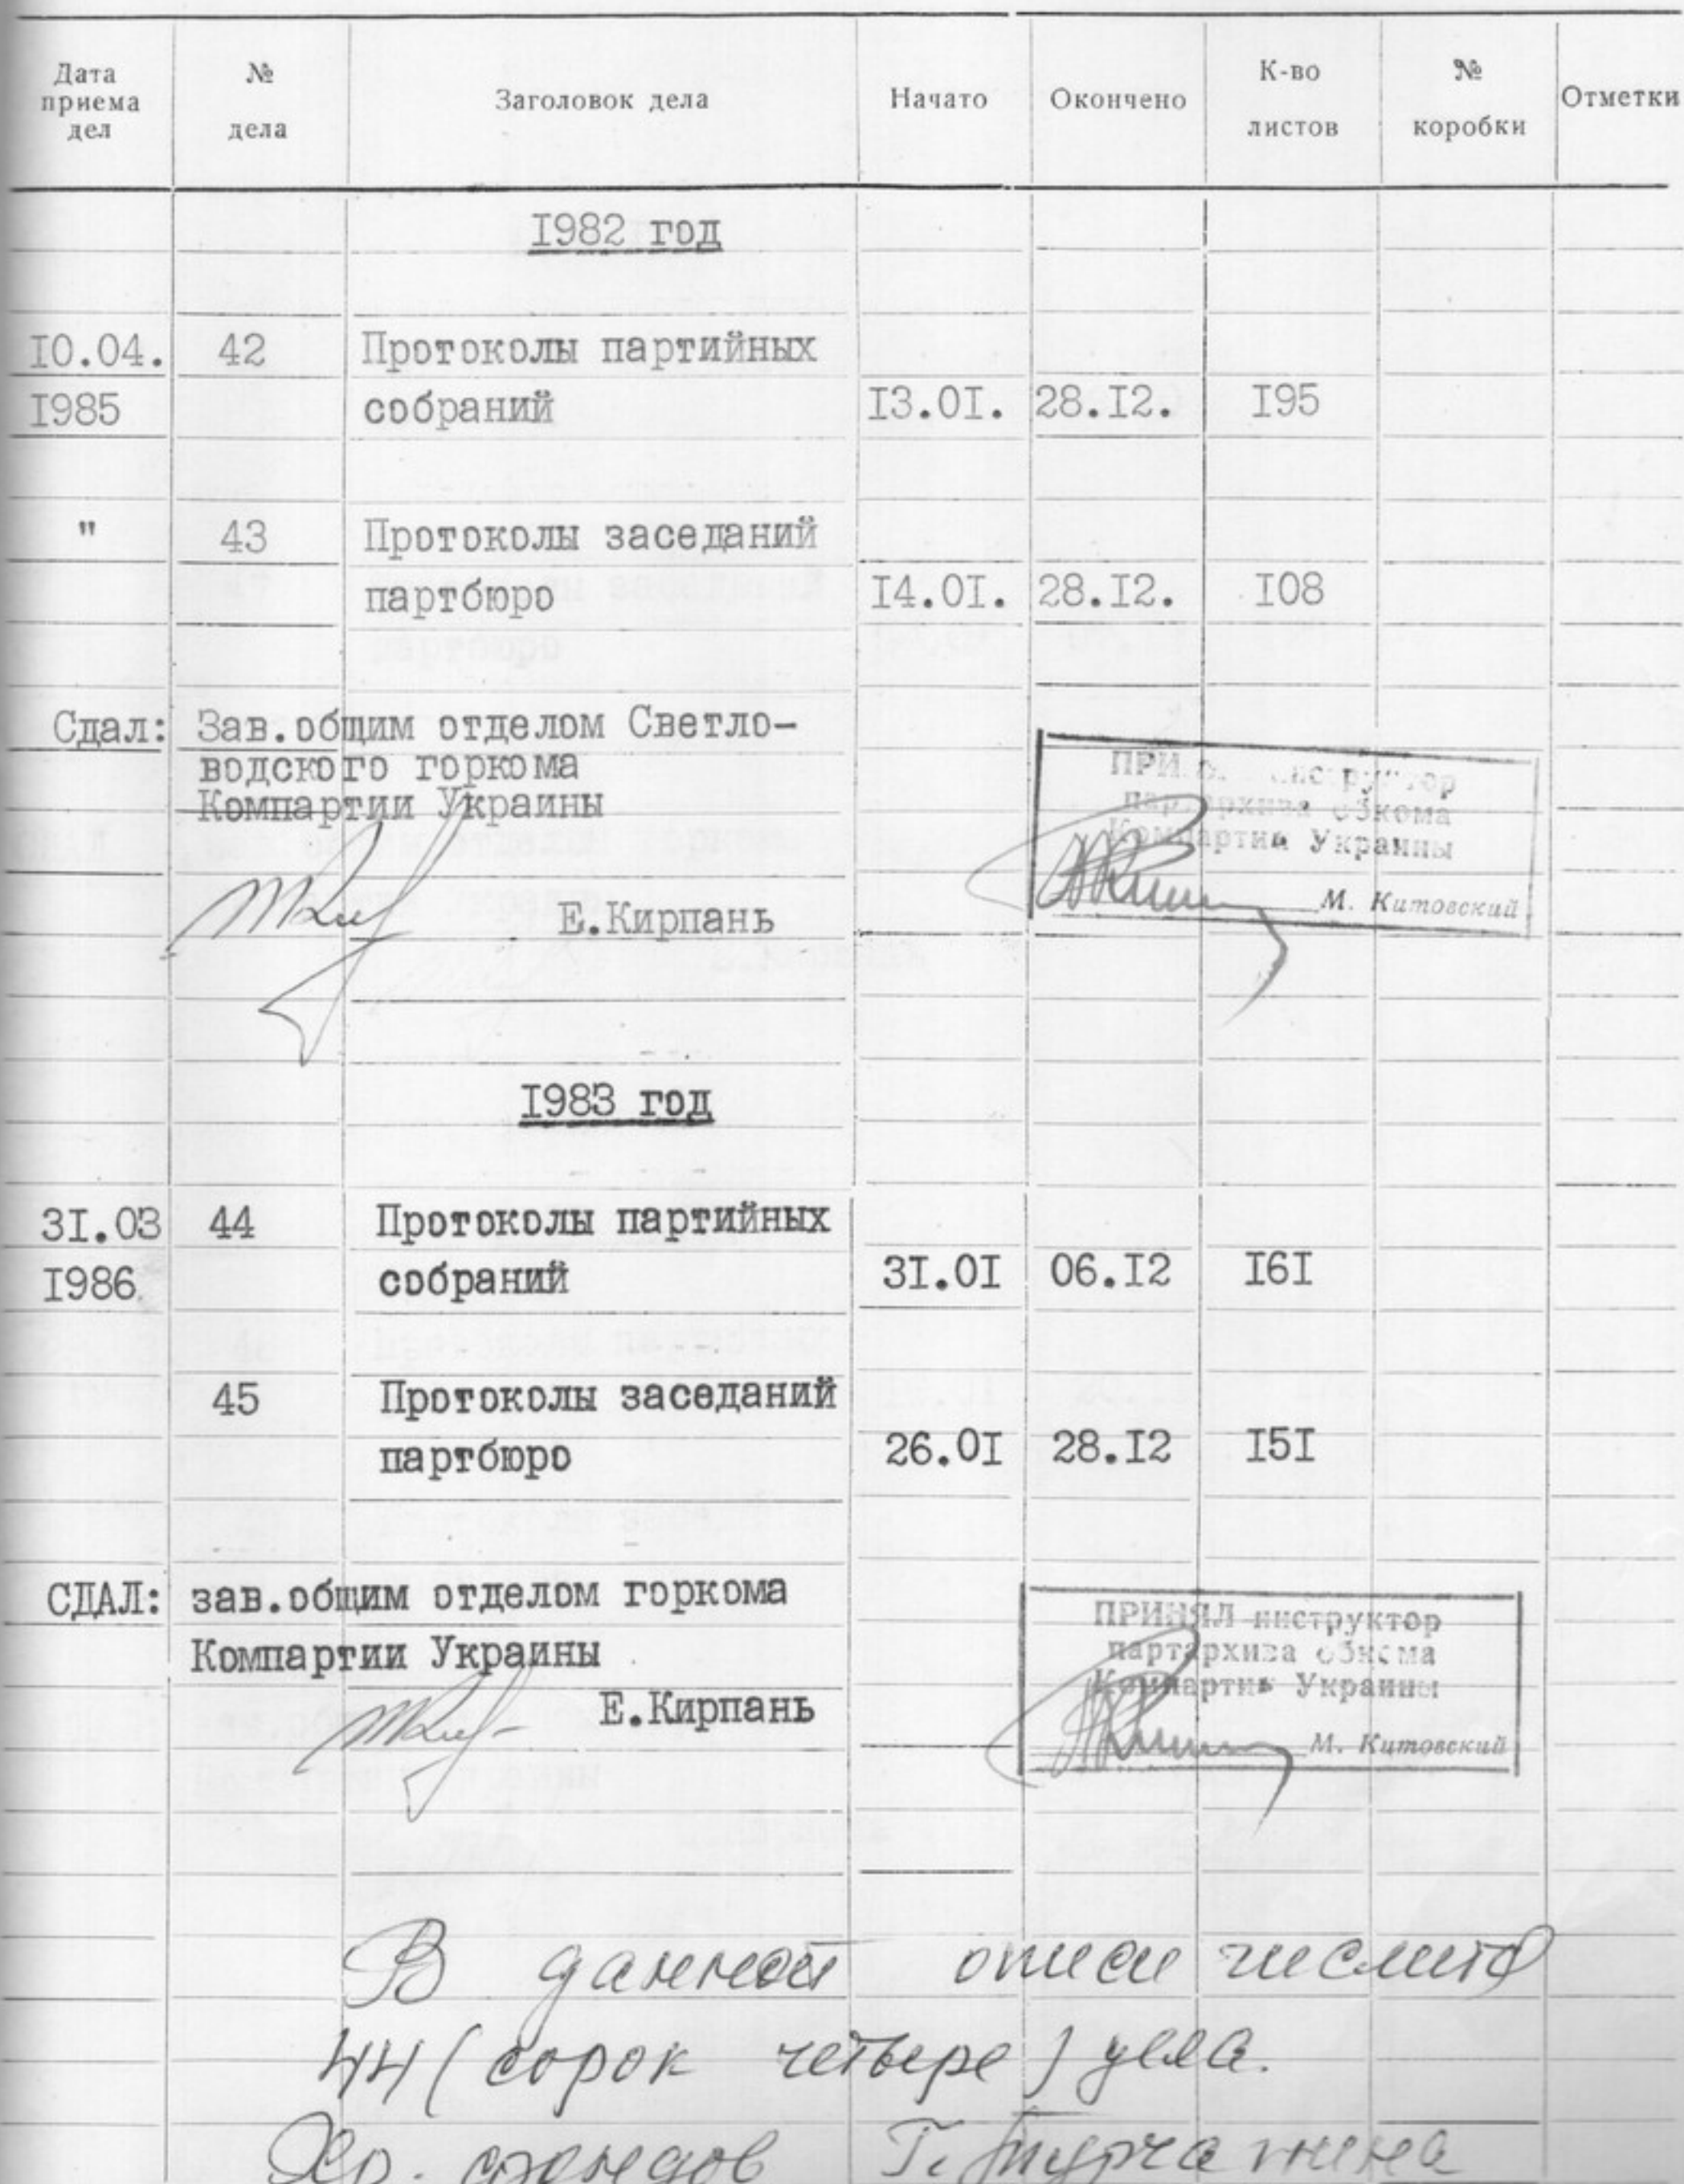 Дата приема дел | № дела | Заголовок дела | Начато | Окончено | К-во листов | № коробки | Отметки
I982 год
I0.04. 42 Протоколы партийных
I985 собраний I3.0I. 28.I2. I95
" 43 Протоколы заседаний
партбюро I4.0I. 28.I2. I08
Сдал: Зав.общим отделом Светло-
водского горкома
Компартии Украины
Е.Кирпань
инструктор
партархива обкома
Компартии Украины
М. Китовский
I983 год
3I.03 44 Протоколы партийных
I986 собраний 3I.0I 06.I2 I6I
45 Протоколы заседаний
партбюро 26.0I 28.I2 I5I
СДАЛ: зав.общим отделом горкома
Компартии Украины
Е.Кирпань
ПРИНЯЛ инструктор
партархива обкома
Компартии Украины
М. Китовский
В данной описи числится
44 (сорок четыре) дела.
Хр. фондов Г.